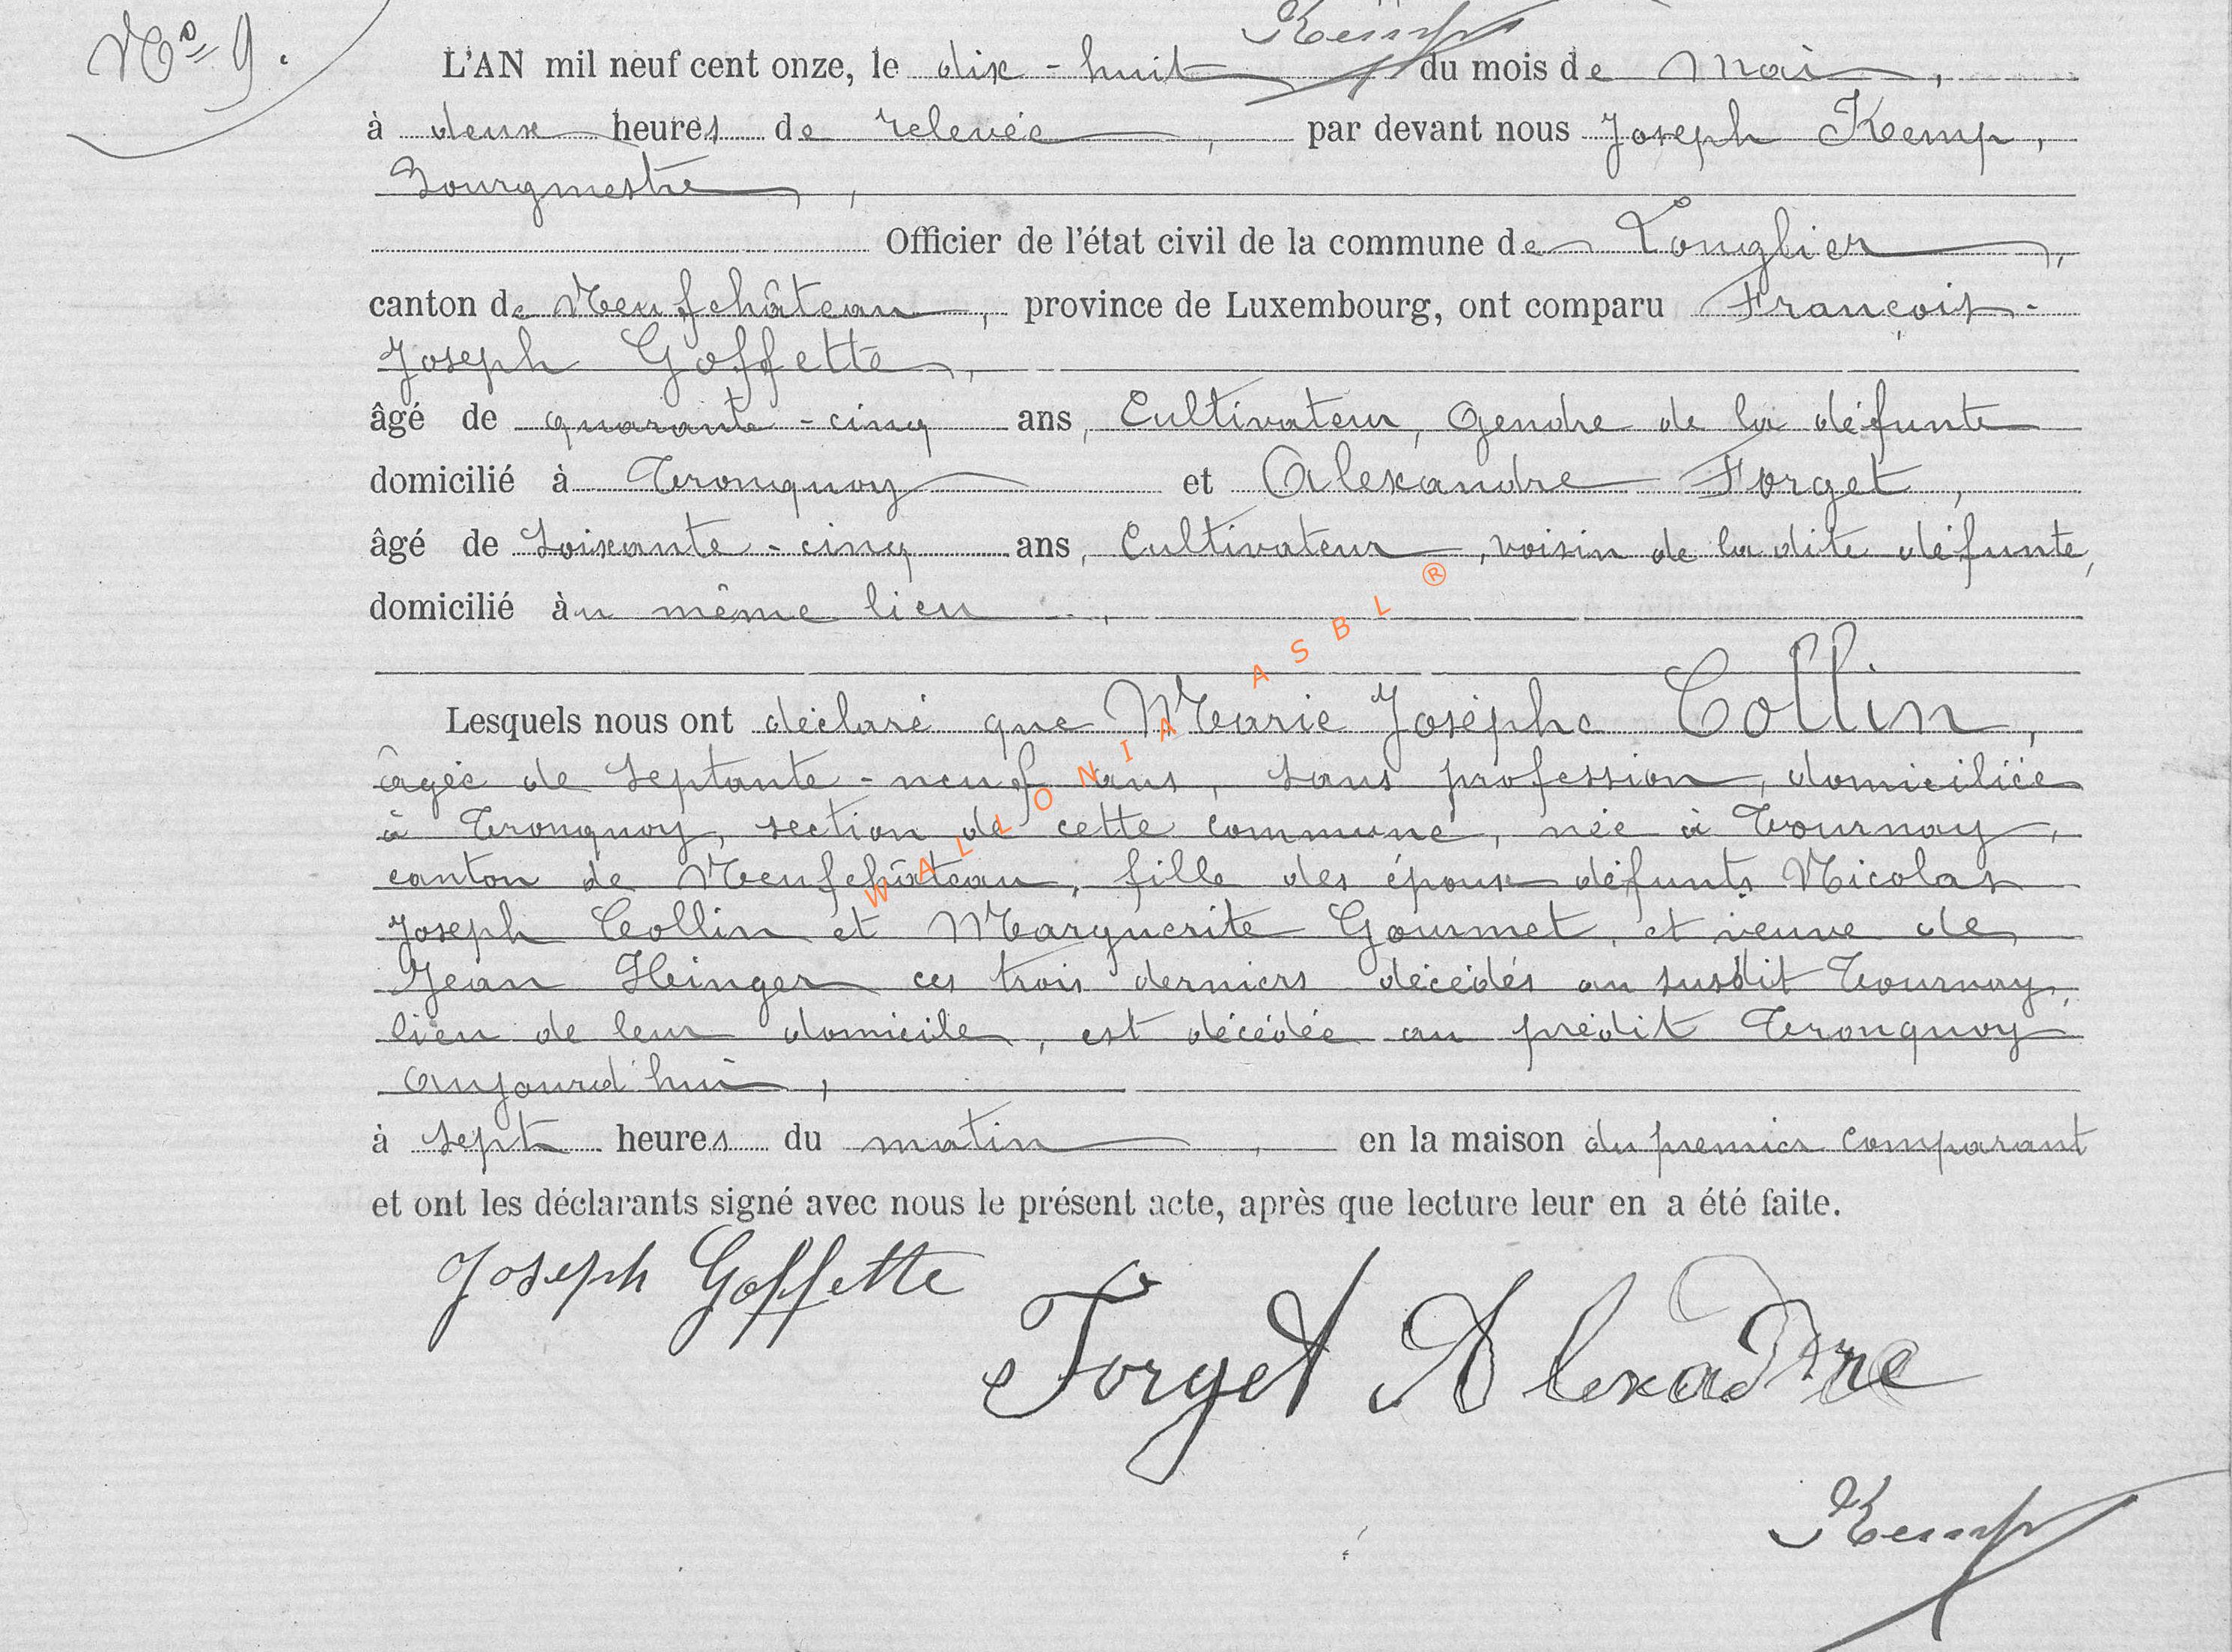 Kemp
No 9.
L'AN mil neuf cent onze, le dix-huit du mois de Mai,
à deux heures de relevée, par devant nous Joseph Kemp,
Bourgmestre,
Officier de l'état civil de la commune de Longlier,
canton de Neufchâteau, province de Luxembourg, ont comparu François-
Joseph Goffette,
âgé de quarante-cinq ans, Cultivateur, Gendre de la défunte
domicilié à Tronquoy et Alexandre Forget,
âgé de soixante-cinq ans, Cultivateur, voisin de la dite défunte,
domicilié au même lieu,
Lesquels nous ont déclaré que Marie Josèphe Collin,
âgée de septante-neuf ans, sans profession, domiciliée
à Tronquoy, section de cette commune, née à Tournay,
canton de Neufchâteau, fille des époux défunts Nicolas
Joseph Collin et Marguerite Gourmet, et veuve de
Jean Hinger ces trois derniers décédés au susdit Tournay,
lieu de leur domicile, est décédée au prédit Tronquoy
aujourd'hui,
à sept heures du matin, en la maison du premier comparant
et ont les déclarants signé avec nous le présent acte, après que lecture leur en a été faite.
Joseph Goffette
Forget Alexadre
Kemp
WALLONIA ASBL ®